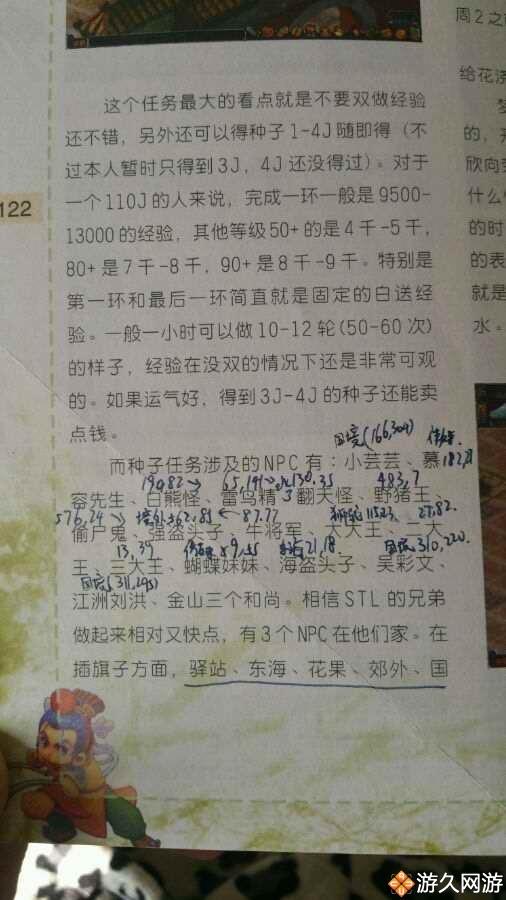 周2之
给花
的，
欣向
什么
的时
的表
就是
水。
122
这个任务最大的看点就是不要双做经验
还不错，另外还可以得种子1-4J随即得（不
过本人暂时只得到3J，4J还没得过）。对于
一个110J的人来说，完成一环一般是9500-
13000的经验，其他等级50+的是4千-5千，
80+是7千-8千，90+是8千-9千。特别是
第一环和最后一环简直就是固定的白送经
验。一般一小时可以做10-12轮(50-60次)
的样子，经验在没双的情况下还是非常可观
的。如果运气好，得到3J-4J的种子还能卖
点钱。
国境(166,309)
而种子任务涉及的NPC有：小芸芸、慕
190,82 → 65,141 130.35 483,7
容先生、白熊怪、雷鸟精、翻天怪、野猪王、
576,24 → 362.85 ← 87.77 狮驼 27,82
偷尸鬼、强盗头子、牛将军、大大王、二大
13,39 89,55 21,18 国境310,220
王、三大王、蝴蝶妹妹、海盗头子、吴彩文、
国境(311,295)
江洲刘洪、金山三个和尚。相信STL的兄弟
做起来相对又快点，有3个NPC在他们家。在
插旗子方面，驿站、东海、花果、郊外、国
游久网游